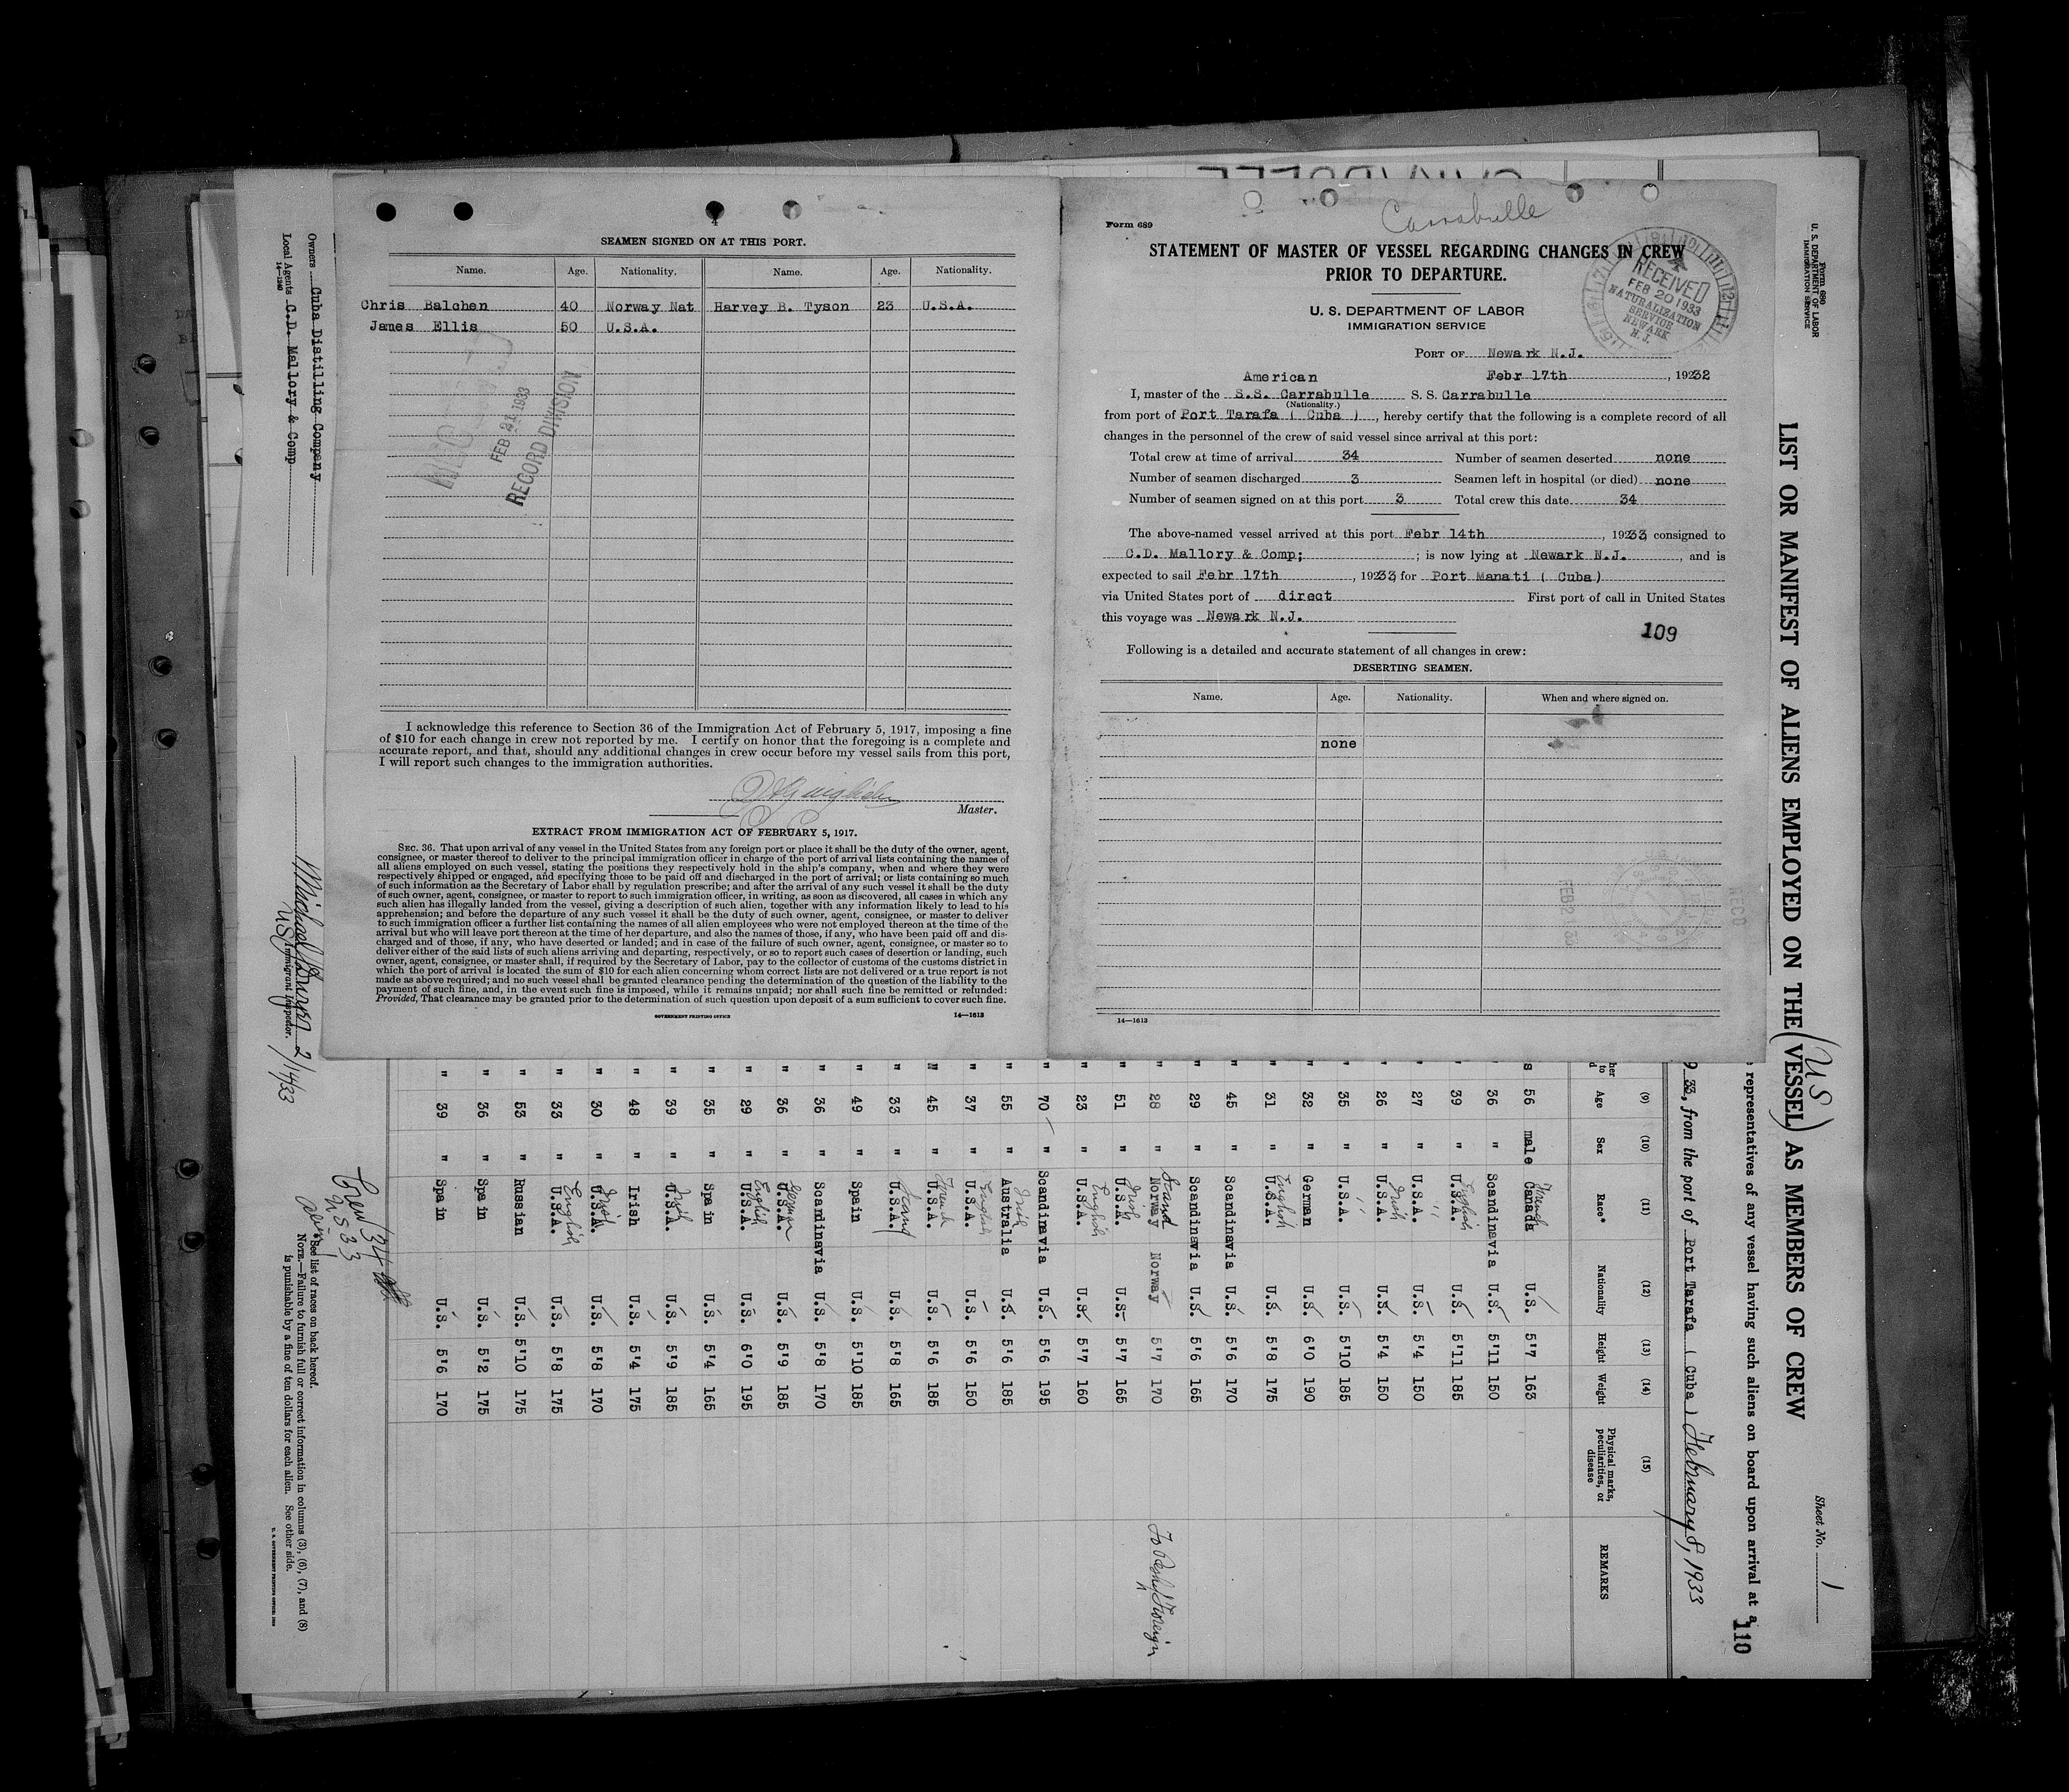 SEAMEN SIGNED ON AT THIS PORT.
Name. Age. Nationality. Name. Age. Nationality.
Chris Balchen 40 Norway Nat Harvey B. Tyson 23 U.S.A.
James Ellis 50 U.S.A.
FEB 21 1933
RECORD DIVISION
I acknowledge this reference to Section 36 of the Immigration Act of February 5, 1917, imposing a fine
of $10 for each change in crew not reported by me. I certify on honor that the foregoing is a complete and
accurate report, and that, should any additional changes in crew occur before my vessel sails from this port,
I will report such changes to the immigration authorities.
Master.
EXTRACT FROM IMMIGRATION ACT OF FEBRUARY 5, 1917.
SEC. 36. That upon arrival of any vessel in the United States from any foreign port or place it shall be the duty of the owner, agent,
consignee, or master thereof to deliver to the principal immigration officer in charge of the port of arrival lists containing the names of
all aliens employed on such vessel, stating the positions they respectively hold in the ship's company, when and where they were
respectively shipped or engaged, and specifying those to be paid off and discharged in the port of arrival; or lists containing so much
of such information as the Secretary of Labor shall by regulation prescribe; and after the arrival of any such vessel it shall be the duty
of such owner, agent, consignee, or master to report to such immigration officer, in writing, as soon as discovered, all cases in which any
such alien has illegally landed from the vessel, giving a description of such alien, together with any information likely to lead to his
apprehension; and before the departure of any such vessel it shall be the duty of such owner, agent, consignee, or master to deliver
to such immigration officer a further list containing the names of all alien employees who were not employed thereon at the time of the
arrival but who will leave port thereon at the time of her departure, and also the names of those, if any, who have been paid off and dis-
charged and of those, if any, who have deserted or landed; and in case of the failure of such owner, agent, consignee, or master so to
deliver either of the said lists of such aliens arriving and departing, respectively, or so to report such cases of desertion or landing, such
owner, agent, consignee, or master shall, if required by the Secretary of Labor, pay to the collector of customs of the customs district in
which the port of arrival is located the sum of $10 for each alien concerning whom correct lists are not delivered or a true report is not
made as above required; and no such vessel shall be granted clearance pending the determination of the question of the liability to the
payment of such fine, and, in the event such fine is imposed, while it remains unpaid; nor shall such fine be remitted or refunded:
Provided, That clearance may be granted prior to the determination of such question upon deposit of a sum sufficient to cover such fine.
GOVERNMENT PRINTING OFFICE 14—1613
Carrabulle
Form 689
STATEMENT OF MASTER OF VESSEL REGARDING CHANGES IN CREW
PRIOR TO DEPARTURE.
RECEIVED
FEB 20 1933
NATURALIZATION
SERVICE
NEWARK
N. J.
U. S. DEPARTMENT OF LABOR
IMMIGRATION SERVICE
PORT OF Newark N.J.
American Febr 17th, 1932
I, master of the S.S. Carrabulle S. S. Carrabulle
(Nationality.)
from port of Port Tarafa ( Cuba ), hereby certify that the following is a complete record of all
changes in the personnel of the crew of said vessel since arrival at this port:
Total crew at time of arrival 34 Number of seamen deserted none
Number of seamen discharged 3 Seamen left in hospital (or died) none
Number of seamen signed on at this port 3 Total crew this date 34
The above-named vessel arrived at this port Febr 14th, 1933 consigned to
C.D. Mallory & Comp; ; is now lying at Newark N.J., and is
expected to sail Febr 17th, 1933 for Port Manati ( Cuba)
via United States port of direct First port of call in United States
this voyage was Newark N.J.
109
Following is a detailed and accurate statement of all changes in crew:
DESERTING SEAMEN.
Name. Age. Nationality. When and where signed on.
none
14—1613
Form 680
U. S. DEPARTMENT OF LABOR
IMMIGRATION SERVICE
Sheet No. 1
LIST OR MANIFEST OF ALIENS EMPLOYED ON THE (VESSEL) AS MEMBERS OF CREW
US
representatives of any vessel having such aliens on board upon arrival at a
110
9 33, from the port of Port Tarafa ( Cuba ) February 8, 1933
(9) (10) (11) (12) (13) (14) (15)
Age Sex Race* Nationality Height Weight Physical marks, peculiarities, or disease REMARKS
56 male French Canada U.S. 5'7 163
36 " Scandinavia U.S. 5'11 150
39 " English U.S.A. U.S. 5'11 185
27 " " U.S.A. U.S. 5'4 150
26 " Irish U.S.A. U.S. 5'4 150
35 " U.S.A. U.S. 5'10 185
32 " German U.S. 6'0 190
31 " English U.S.A. U.S. 5'8 175
45 " Scandinavia U.S. 5'6 170
29 " Scandinavia U.S. 5'6 165
28 " Scand Norway Norway 5'7 170 To Reship Foreign
51 " Irish U.S.A. U.S. 5'7 165
23 " English U.S.A. U.S. 5'7 160
70 " Scandinavia U.S. 5'6 195
55 " Irish Australia U.S. 5'6 185
37 " English U.S.A. U.S. 5'6 150
45 " French U.S.A. U.S. 5'6 185
33 " Scand U.S.A. U.S. 5'8 165
49 " Spain U.S. 5'10 185
36 " Scandinavia U.S. 5'8 170
36 " German U.S.A. U.S. 5'9 185
29 " English U.S.A. U.S. 6'0 195
35 " Spain U.S. 5'4 165
39 " Irish U.S.A. U.S. 5'9 185
48 " Irish U.S. 5'4 175
30 " Irish U.S.A. U.S. 5'8 170
33 " English U.S.A. U.S. 5'8 175
53 " Russian U.S. 5'10 175
36 " Spain U.S. 5'2 175
39 " Spain U.S. 5'6 170
Crew 34
US 33
alien 1
*See list of races on back hereof.
NOTE.—Failure to furnish full or correct information in columns (3), (6), (7), and (8)
is punishable by a fine of ten dollars for each alien. See other side.
Owners Cuba Distilling Company
Local Agents C.D. Mallory & Comp
14—1240
US Immigrant Inspector.
2/14/33